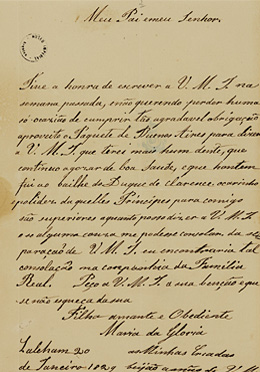 Meu Pai e meu Senhor.
Tive a honra de escrever a V. M. I. na
semana passada, não querendo perder huma
só occazião de cumprir tão agradavel obrigação
aproveito o Paquete de Buenos Aires para dizer
a V. M. I. que terei mais hum dente, que
continuo a gozar de boa Saude, e que hontem
fui ao bailhe do Duque de Clarence, o carinho
e polidez daquelles Principes para comigo
são superiores a quanto posso dizer a V. M. I.
e se alguma couza me podesse consolar da se
paração de V. M. I. eu encontraria tal
consolação na companhia da Familia
Real. Peço a V. M. I. a sua benção a que
se não esqueça da sua
Filha amante e Obediente
Maria da Gloria
Laleham 20
de Janeiro 1829
as Minhas Criadas
beijão a mão de V. M.